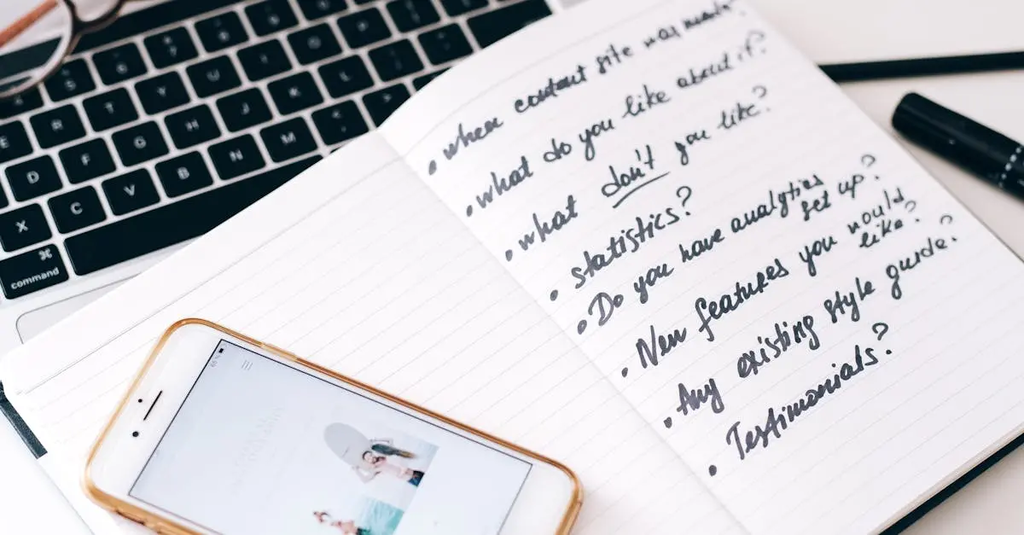 • When content site was made?
• what do you like about it?
• what don't you like?
• statistics?
• Do you have analytics
set up?
• New features you would
like?
• Any existing style guide?
• Testimonials?
E
R
T
Y
U
D
F
G
H
J
K
L
X
C
V
B
N
M
⌘
command